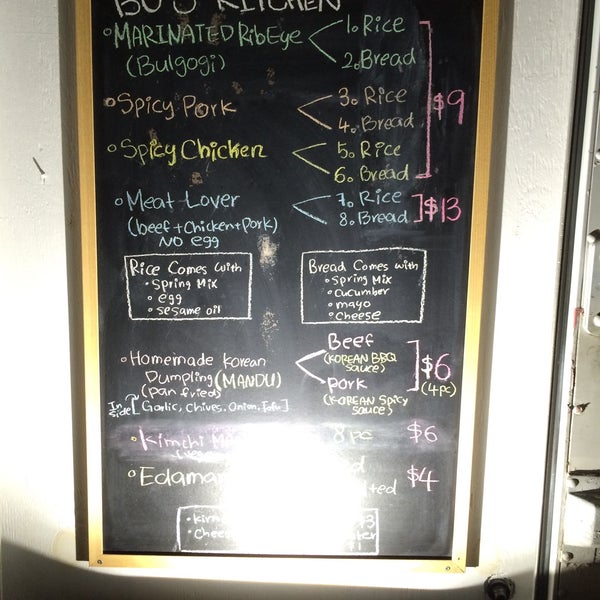 BO'S KITCHEN
• MARINATED RibEye 1. Rice
(Bulgogi) 2. Bread
• Spicy Pork 3. Rice
4. Bread $9
• Spicy Chicken 5. Rice
6. Bread
• Meat Lover 7. Rice
8. Bread $13
(beef + Chicken + pork)
NO egg
Rice Comes with
• Spring Mix
• egg
• sesame oil
Bread Comes with
• Spring Mix
• Cucumber
• mayo
• Cheese
• Homemade Korean
Dumpling (MANDU)
(Pan fried)
Inside [Garlic, Chives, Onion, Tofu]
Beef
(KOREAN BBQ
Sauce)
Pork
(KOREAN SPICY
Sauce)
$6
(4pc)
• Kimchi 8 pc $6
$4